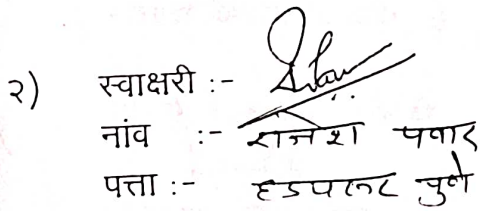 २) स्वाक्षरी :-
नांव :- राजेश पवार
पत्ता :- हडपसर पुणे